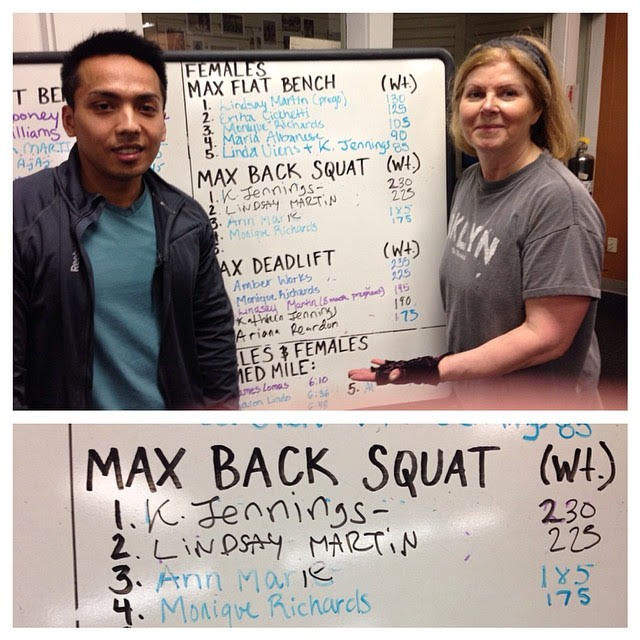 FEMALES
MAX FLAT BENCH (Wt.)
1. Lindsay Martin (prego) 130
2. Erika Cicchetti 125
3. Monique Richards 105
4. Maria Albanese 90
5. Linda Viens + K. Jennings 85
MAX BACK SQUAT (Wt.)
1. K Jennings- 230
2. LINDSAY MARTIN 225
3. Ann Marie 185
4. Monique Richards 175
AX DEADLIFT (Wt.)
Amber Works 235
Monique Richards 225
Lindsay Martin (8 month pregnant) 195
Kathleen Jennings 190
Ariana Reardon 175
LES & FEMALES
MED MILE:
ames Lomas 6:10
ason Lindo 6:36
5.
T BE
ooney
illiams
MARTI
Reebok
KLYN
85
MAX BACK SQUAT (Wt.)
1. K. Jennings- 230
2. LINDSAY MARTIN 225
3. Ann Marie 185
4. Monique Richards 175